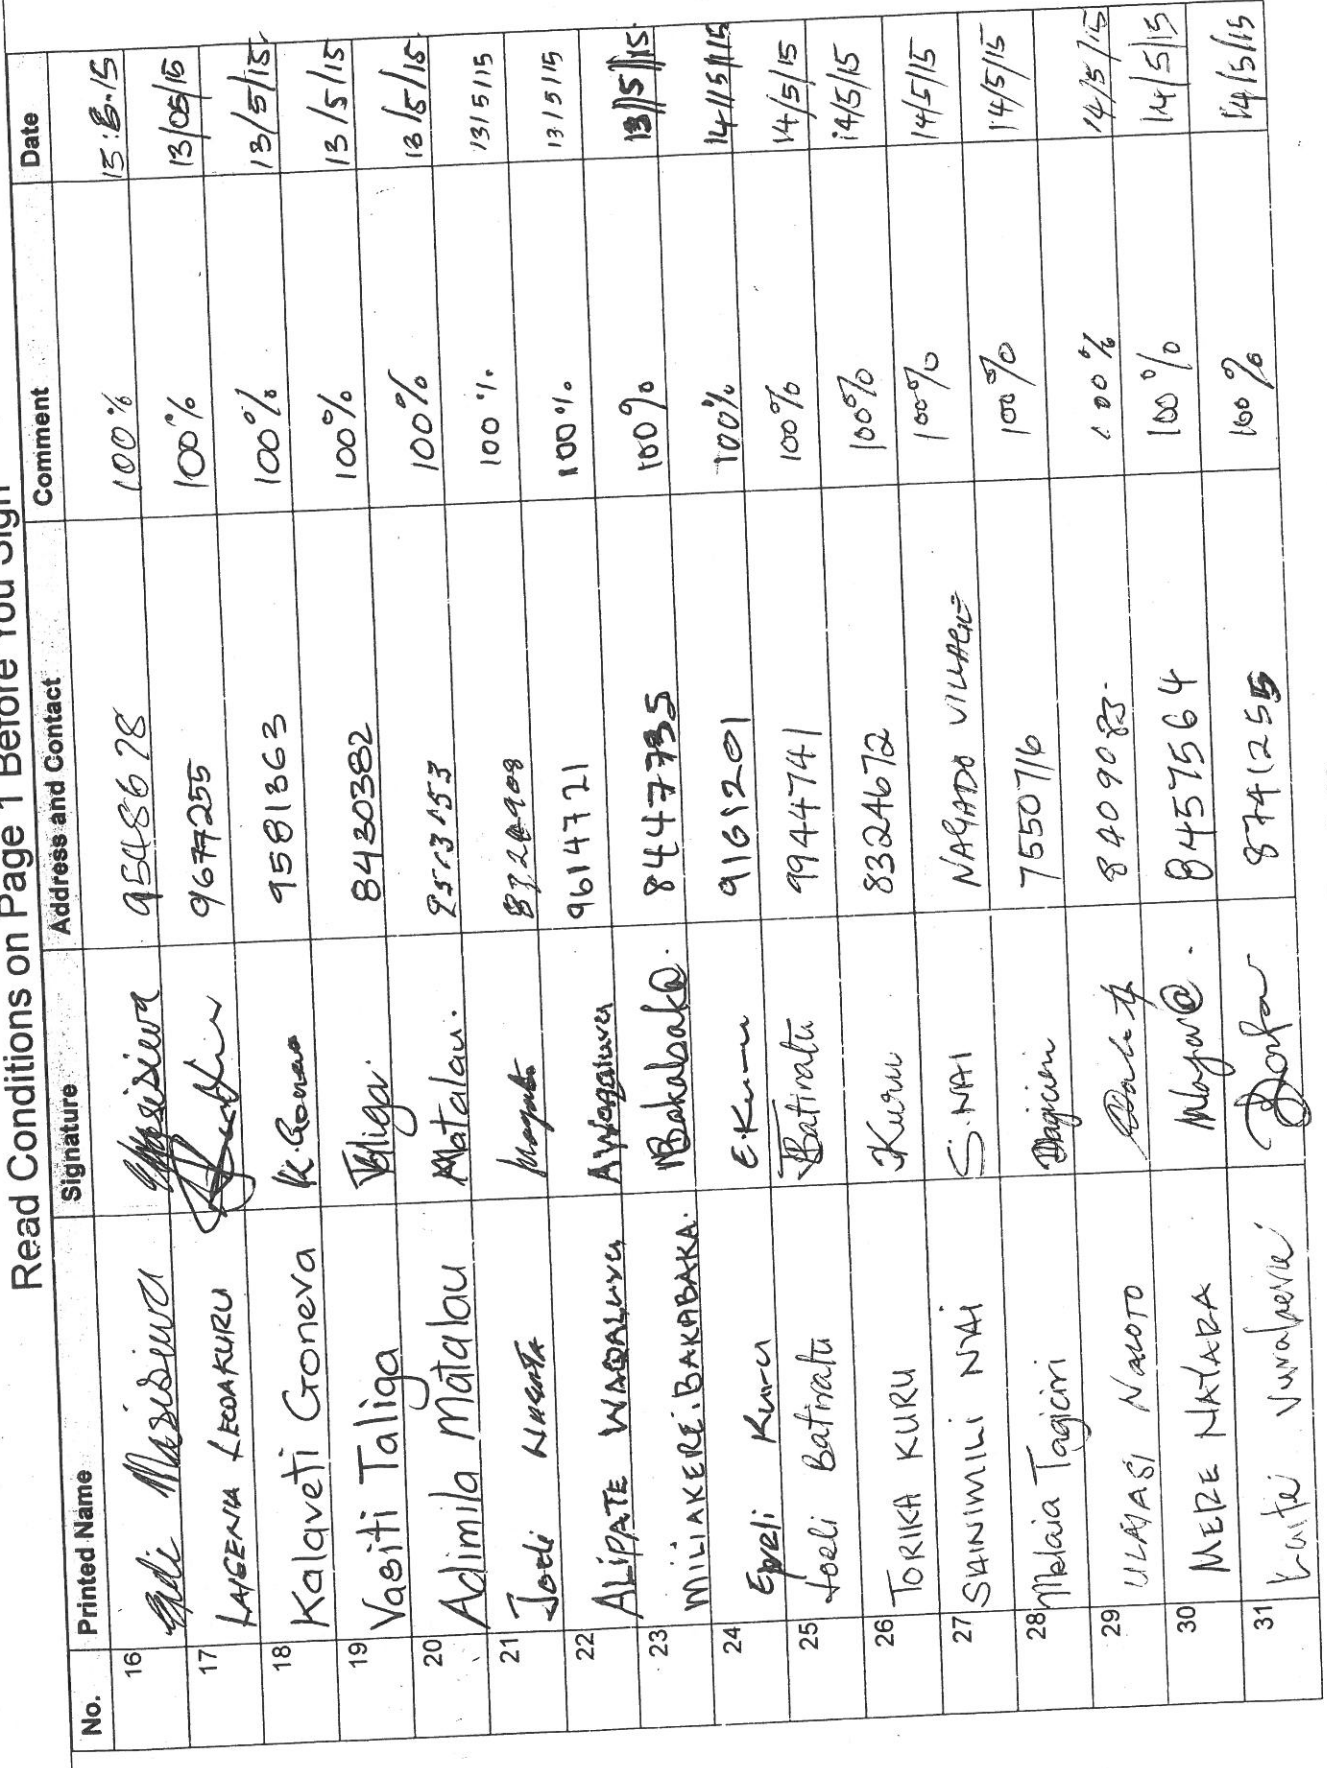 Read Conditions on Page 1 Before You Sign
No. Printed Name Signature Address and Contact Comment Date
16 Masisiwa 9548678 100%
17 LAISENIA LEDAKURU 9677255 100% 13/05/15
18 Kalaveti Goneva K. Goneva 9581363 100% 13/5/15
19 Vasiti Taliga Taliga 8430382 100% 13/5/15
20 Adimila Matalau Matalau. 100% 13/5/15
21 Joeli 100% 13/5/15
22 ALIPATE WAQALUVU AWaqaluvu 9614721 100% 13/5/15
23 MILIAKERE. BAKABAKA. MBakabaka. 8447735 100% 13/5/15
24 Epeli Kuru E.Kuru 9161201 100% 14/5/15
25 Joeli Batiratu JBatiratu 9944741 100% 14/5/15
26 TORIKA KURU TKuru 8324672 100% 14/5/15
27 SAINIMILI NAI S. NAI NAQADO VILLAGE 100% 14/5/15
28 Melaia Tagiciri MTagiciri 7550716 100% 14/5/15
29 ULAIASI 8409083. 100% 14/5/15
30 MERE NAYARA 8457564 100% 14/5/15
31 8741255 100% 14/5/15